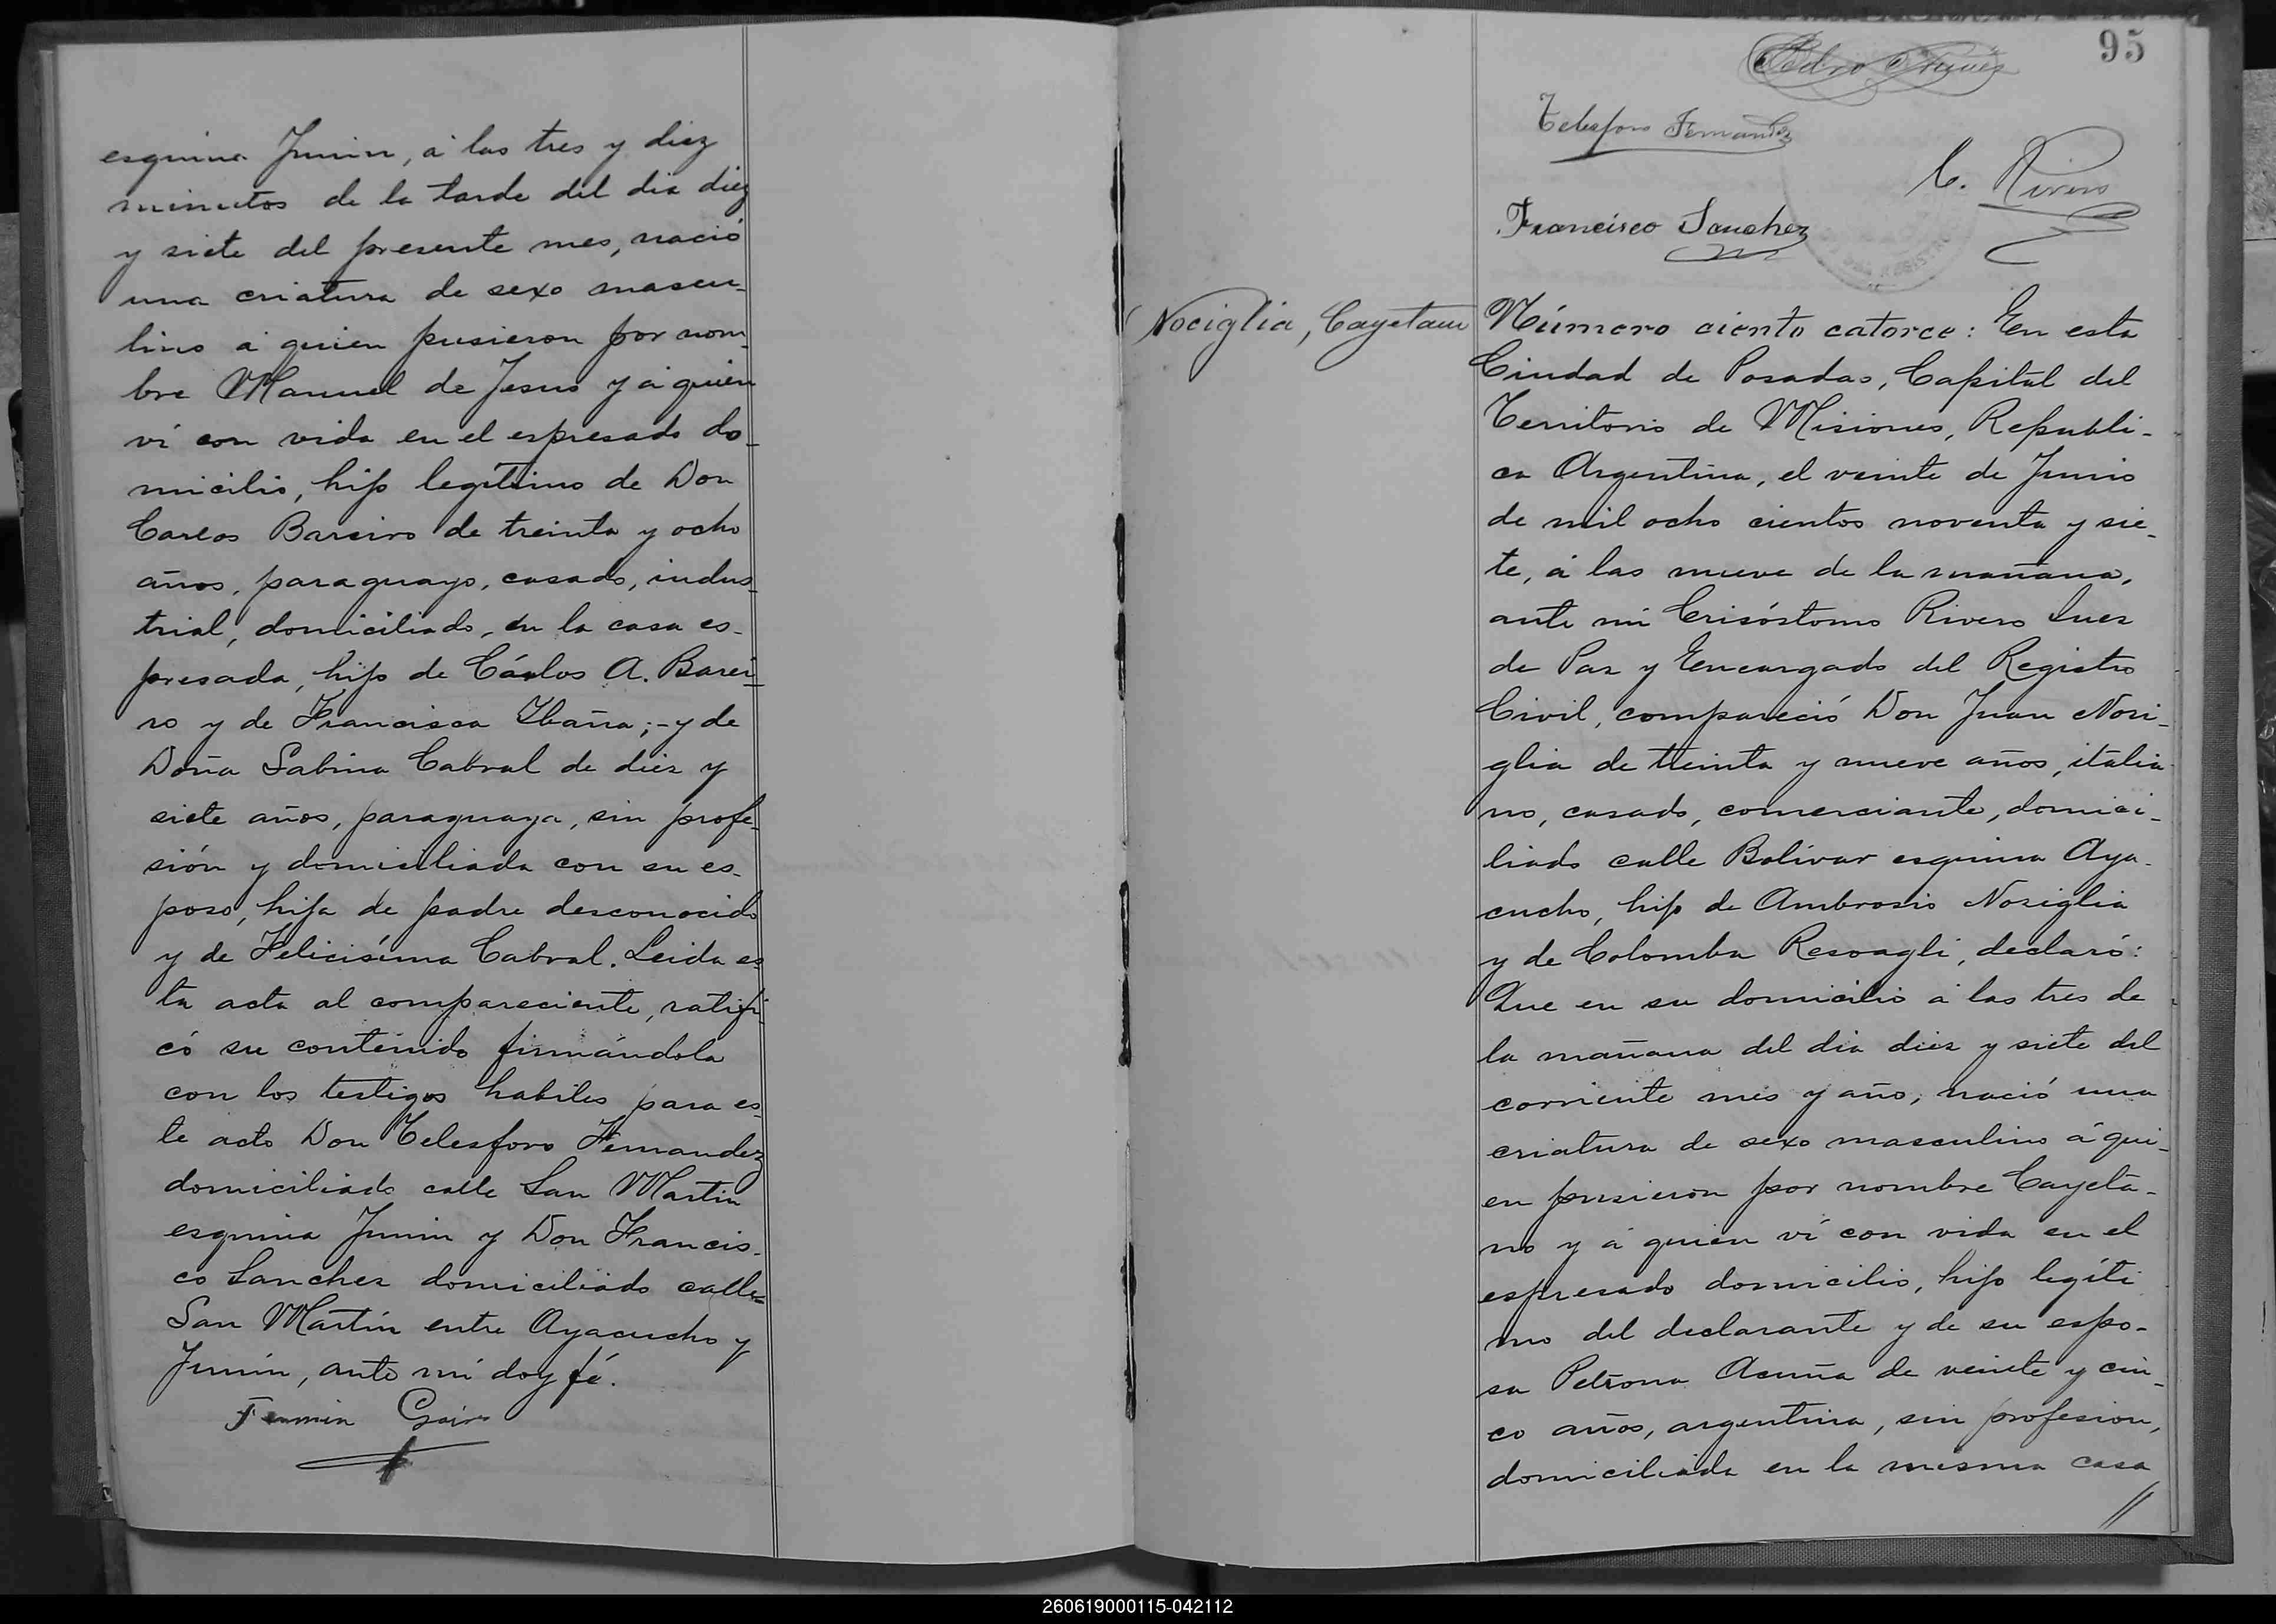 esquina Junin, á las tres y diez
minutos de la tarde del dia diez
y siete del presente mes, nació
una criatura de sexo mascu-
lino á quien pusieron por nom-
bre Manuel de Jesus y á quien
ví con vida en el espresado do-
micilio, hijo legítimo de Don
Carlos Bareiro de treinta y ocho
años, paraguayo, casado, indus-
trial, domiciliado, en la casa es-
presada, hijo de Cárlos A. Barei-
ro y de Francisca Ibaña;- y de
Doña Sabina Cabral de diez y
siete años, paraguaya, sin profe-
sión y domiciliada con su es-
poso, hija de padre desconocido
y de Felicisíma Cabral. Leida es
ta acta al compareciente, ratifi-
có su contenido firmándola
con los testigos habiles para es-
te acto Don Telesforo Fernandez
domiciliado calle San Martin
esquina Junin y Don Francis-
co Sanchez domiciliado calle
San Martín entre Ayacucho y
Junín, ante mí doy fé.
Fermin
95
Pedro
Telesforo Fernandez
C. Rivero
Francisco Sanchez
Nociglia, Cayetano
Número ciento catorce: En esta
Ciudad de Posadas, Capital del
Territorio de Misiones, Republi-
ca Argentina, el veinte de Junio
de mil ocho cientos noventa y sie-
te, á las nueve de la mañana,
ante mi Crisóstomo Rivero Juez
de Paz y Encargado del Registro
Civil, compareció Don Juan Nosi-
glia de treinta y nueve años, italia-
no, casado, comerciante, domici-
liado calle Bolívar esquina Aya-
cucho, hijo de Ambrosio Nosiglia
y de Colomba Resoagli, declaró:
Que en su domicilio á las tres de
la mañana del dia diez y siete del
corriente mes y año, nació una
criatura de sexo masculino á qui-
en pusieron por nombre Cayeta-
no y á quien ví con vida en el
espresado domicilio, hijo legíti
mo del declarante y de su espo-
sa Petrona Acuña de veinte y cin-
co años, argentina, sin profesion,
domiciliada en la misma casa
//
260619000115-042112